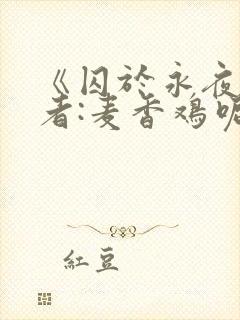 《囚於永夜
者:麦香鸡呢
紅豆